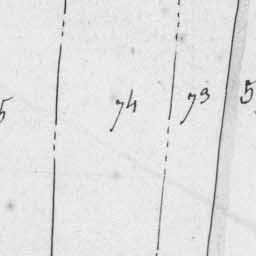 5 74 73 5